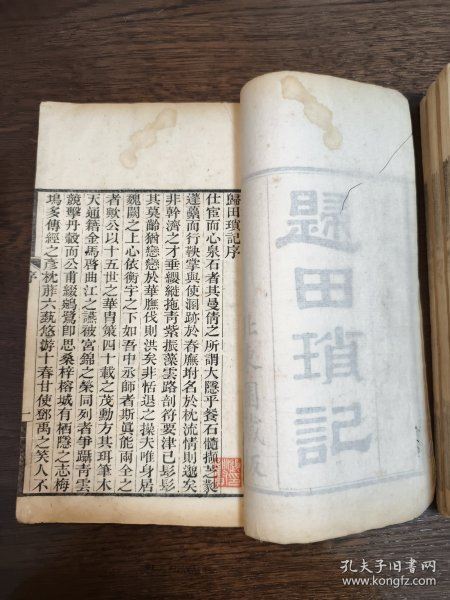 歸田瑣記
歸田瑣記序
仕宦而心泉石者其曼倩之所謂大隱乎餐石髓擷芝製
蓬藥而行鞅掌與使洞跡於春廡附名於枕流情則逖矣
非幹濟之才垂纓縰拖青紫振藻雲路剖符要津已髟髟
其莫齡猶戀戀於華膴伐則洪矣非恬退之操夫唯身居
魏闕之上心依衡宇之下如吾中丞師者斯眞能兩全之
者歟公以十五世之華胄策四十載之茂勳方其珥筆木
天通籍金馬啓曲江之讌被宮錦之榮同列者爭躡靑雲
競擊丹轂而公甫綴鵷鷺卽思桑梓榕城有栖隱之志梅
塢多傳經之彥枕葄六蓺悠游十春甘使鄧禹之笑人不
序
一
孔夫子旧书网
www.kongfz.com